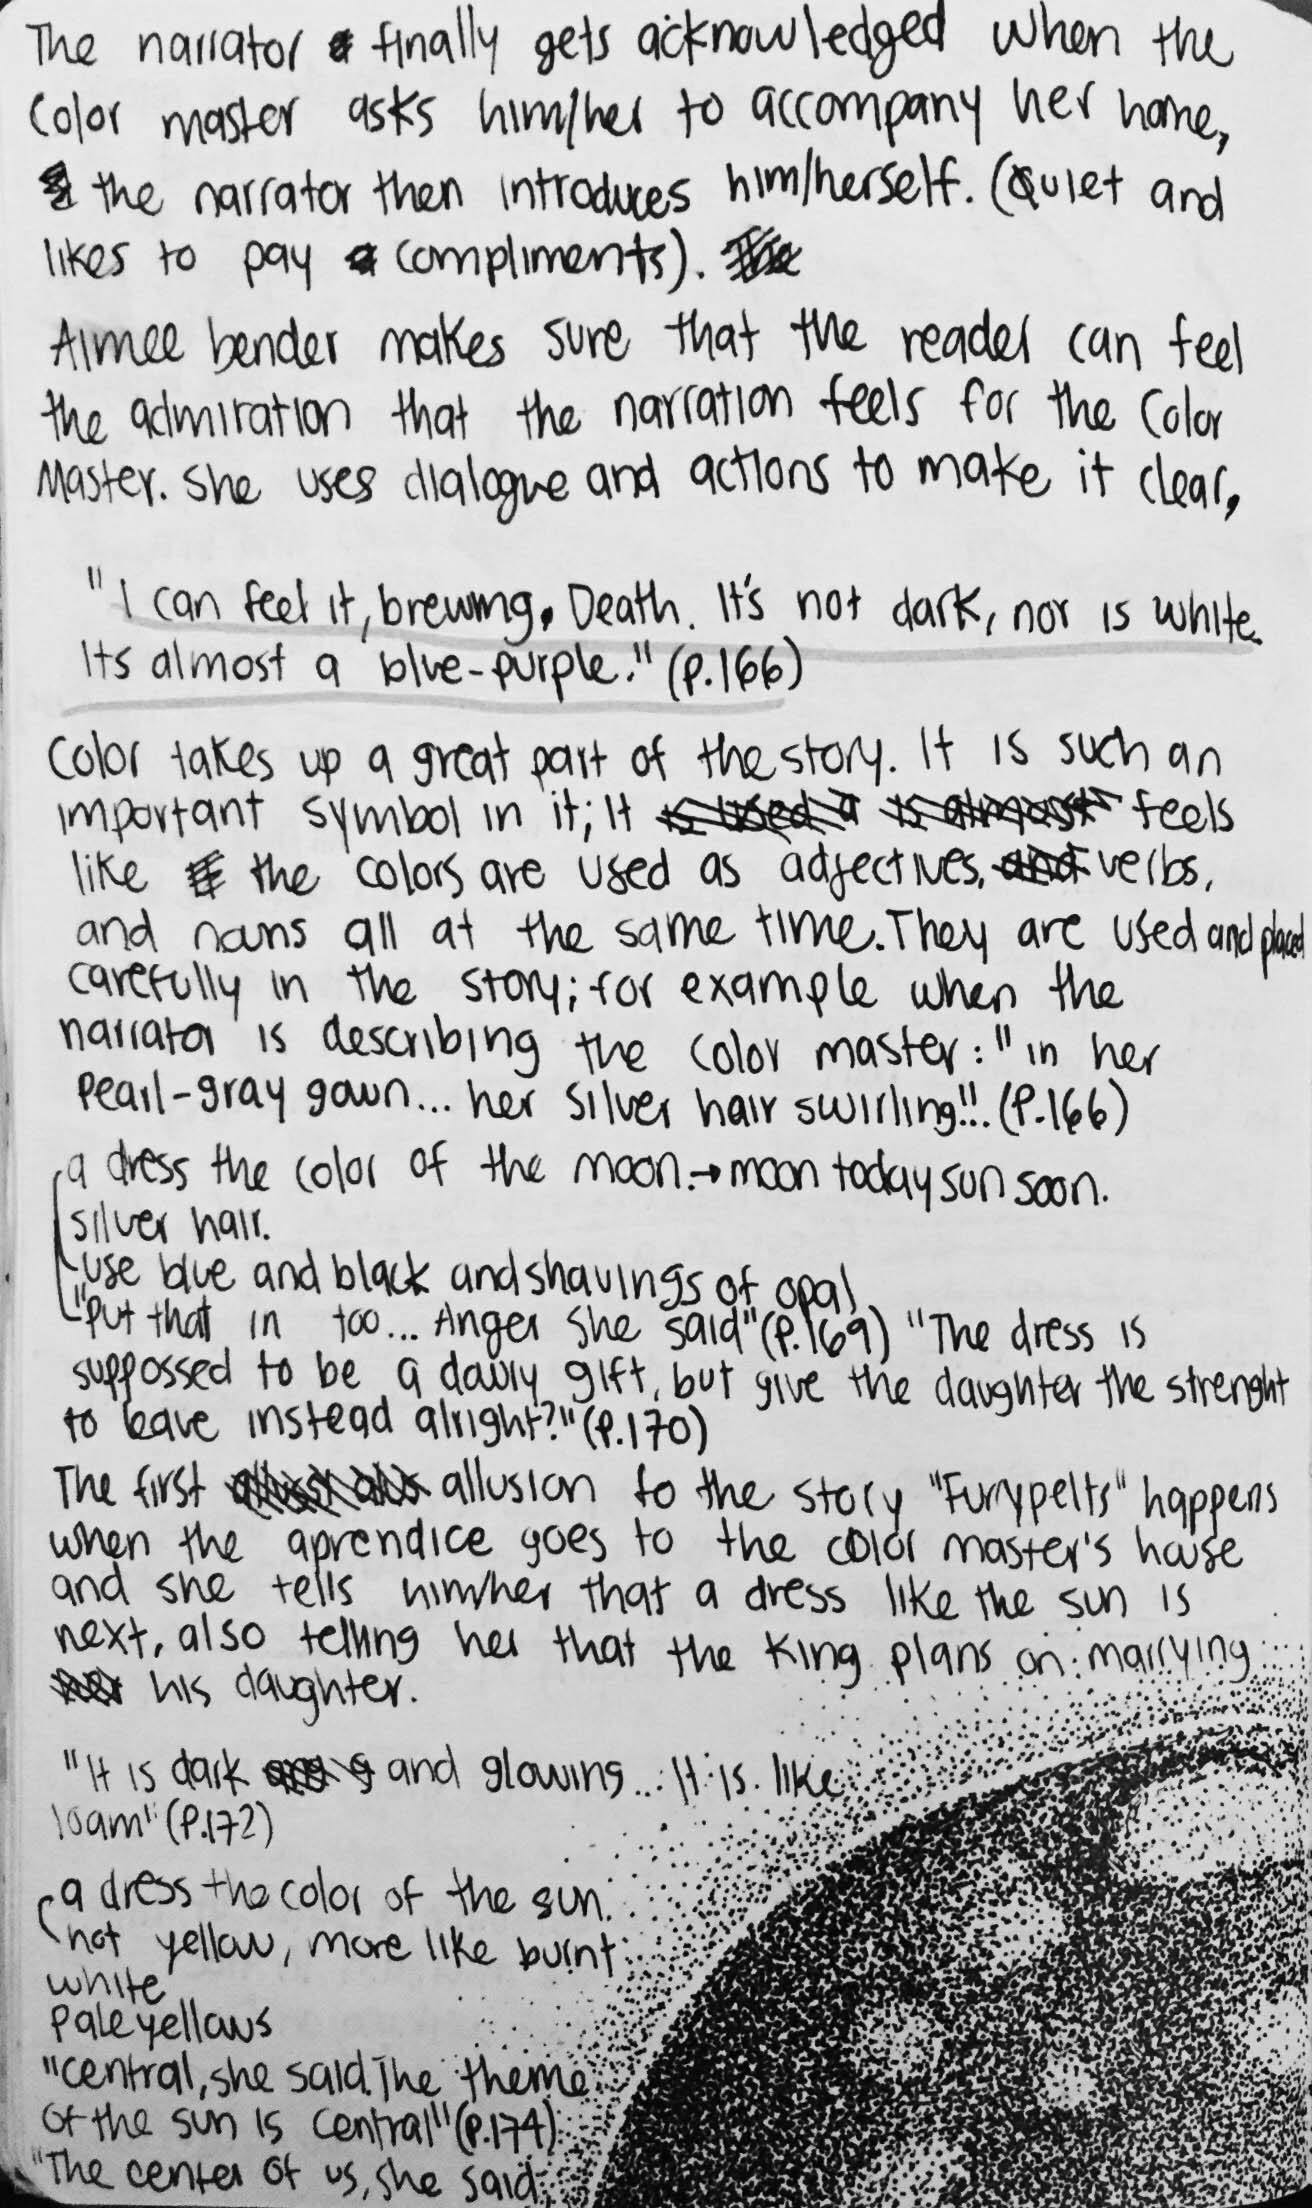 The narrator finally gets acknowledged when the
Color master asks him/her to accompany her home,
the narrator then introduces him/herself. (Quiet and
likes to pay compliments). The
Aimee bender makes sure that the reader can feel
the admiration that the narration feels for the Color
Master. She uses dialogue and actions to make it clear,
"I can feel it, brewing. Death. It's not dark, nor is white.
Its almost a blue-purple." (p.166)
Color takes up a great part of the story. It is such an
important symbol in it; It is used a is almost feels
like the colors are used as adjectives, and verbs,
and nouns all at the same time. They are used and placed
carefully in the story; for example when the
narrator is describing the color master: "in her
pearl-gray gown... her silver hair swirling!!. (P.166)
a dress the color of the moon. → moon today sun soon.
silver hair.
use blue and black and shavings of opal
"Put that in too... Anger she said" (P.169) "The dress is
suppossed to be a dowry gift, but give the daughter the strenght
to leave instead alright?" (P.170)
The first allusion to the story "Furrypelts" happens
when the aprendice goes to the color master's house
and she tells him/her that a dress like the sun is
next, also telling her that the King plans on marrying
her his daughter.
"It is dark and glowing... It is like
loam" (P.172)
a dress the color of the sun.
not yellow, more like burnt
white
Pale yellows
"central, she said. The theme
of the sun is central" (p.174)
"The center of us, she said